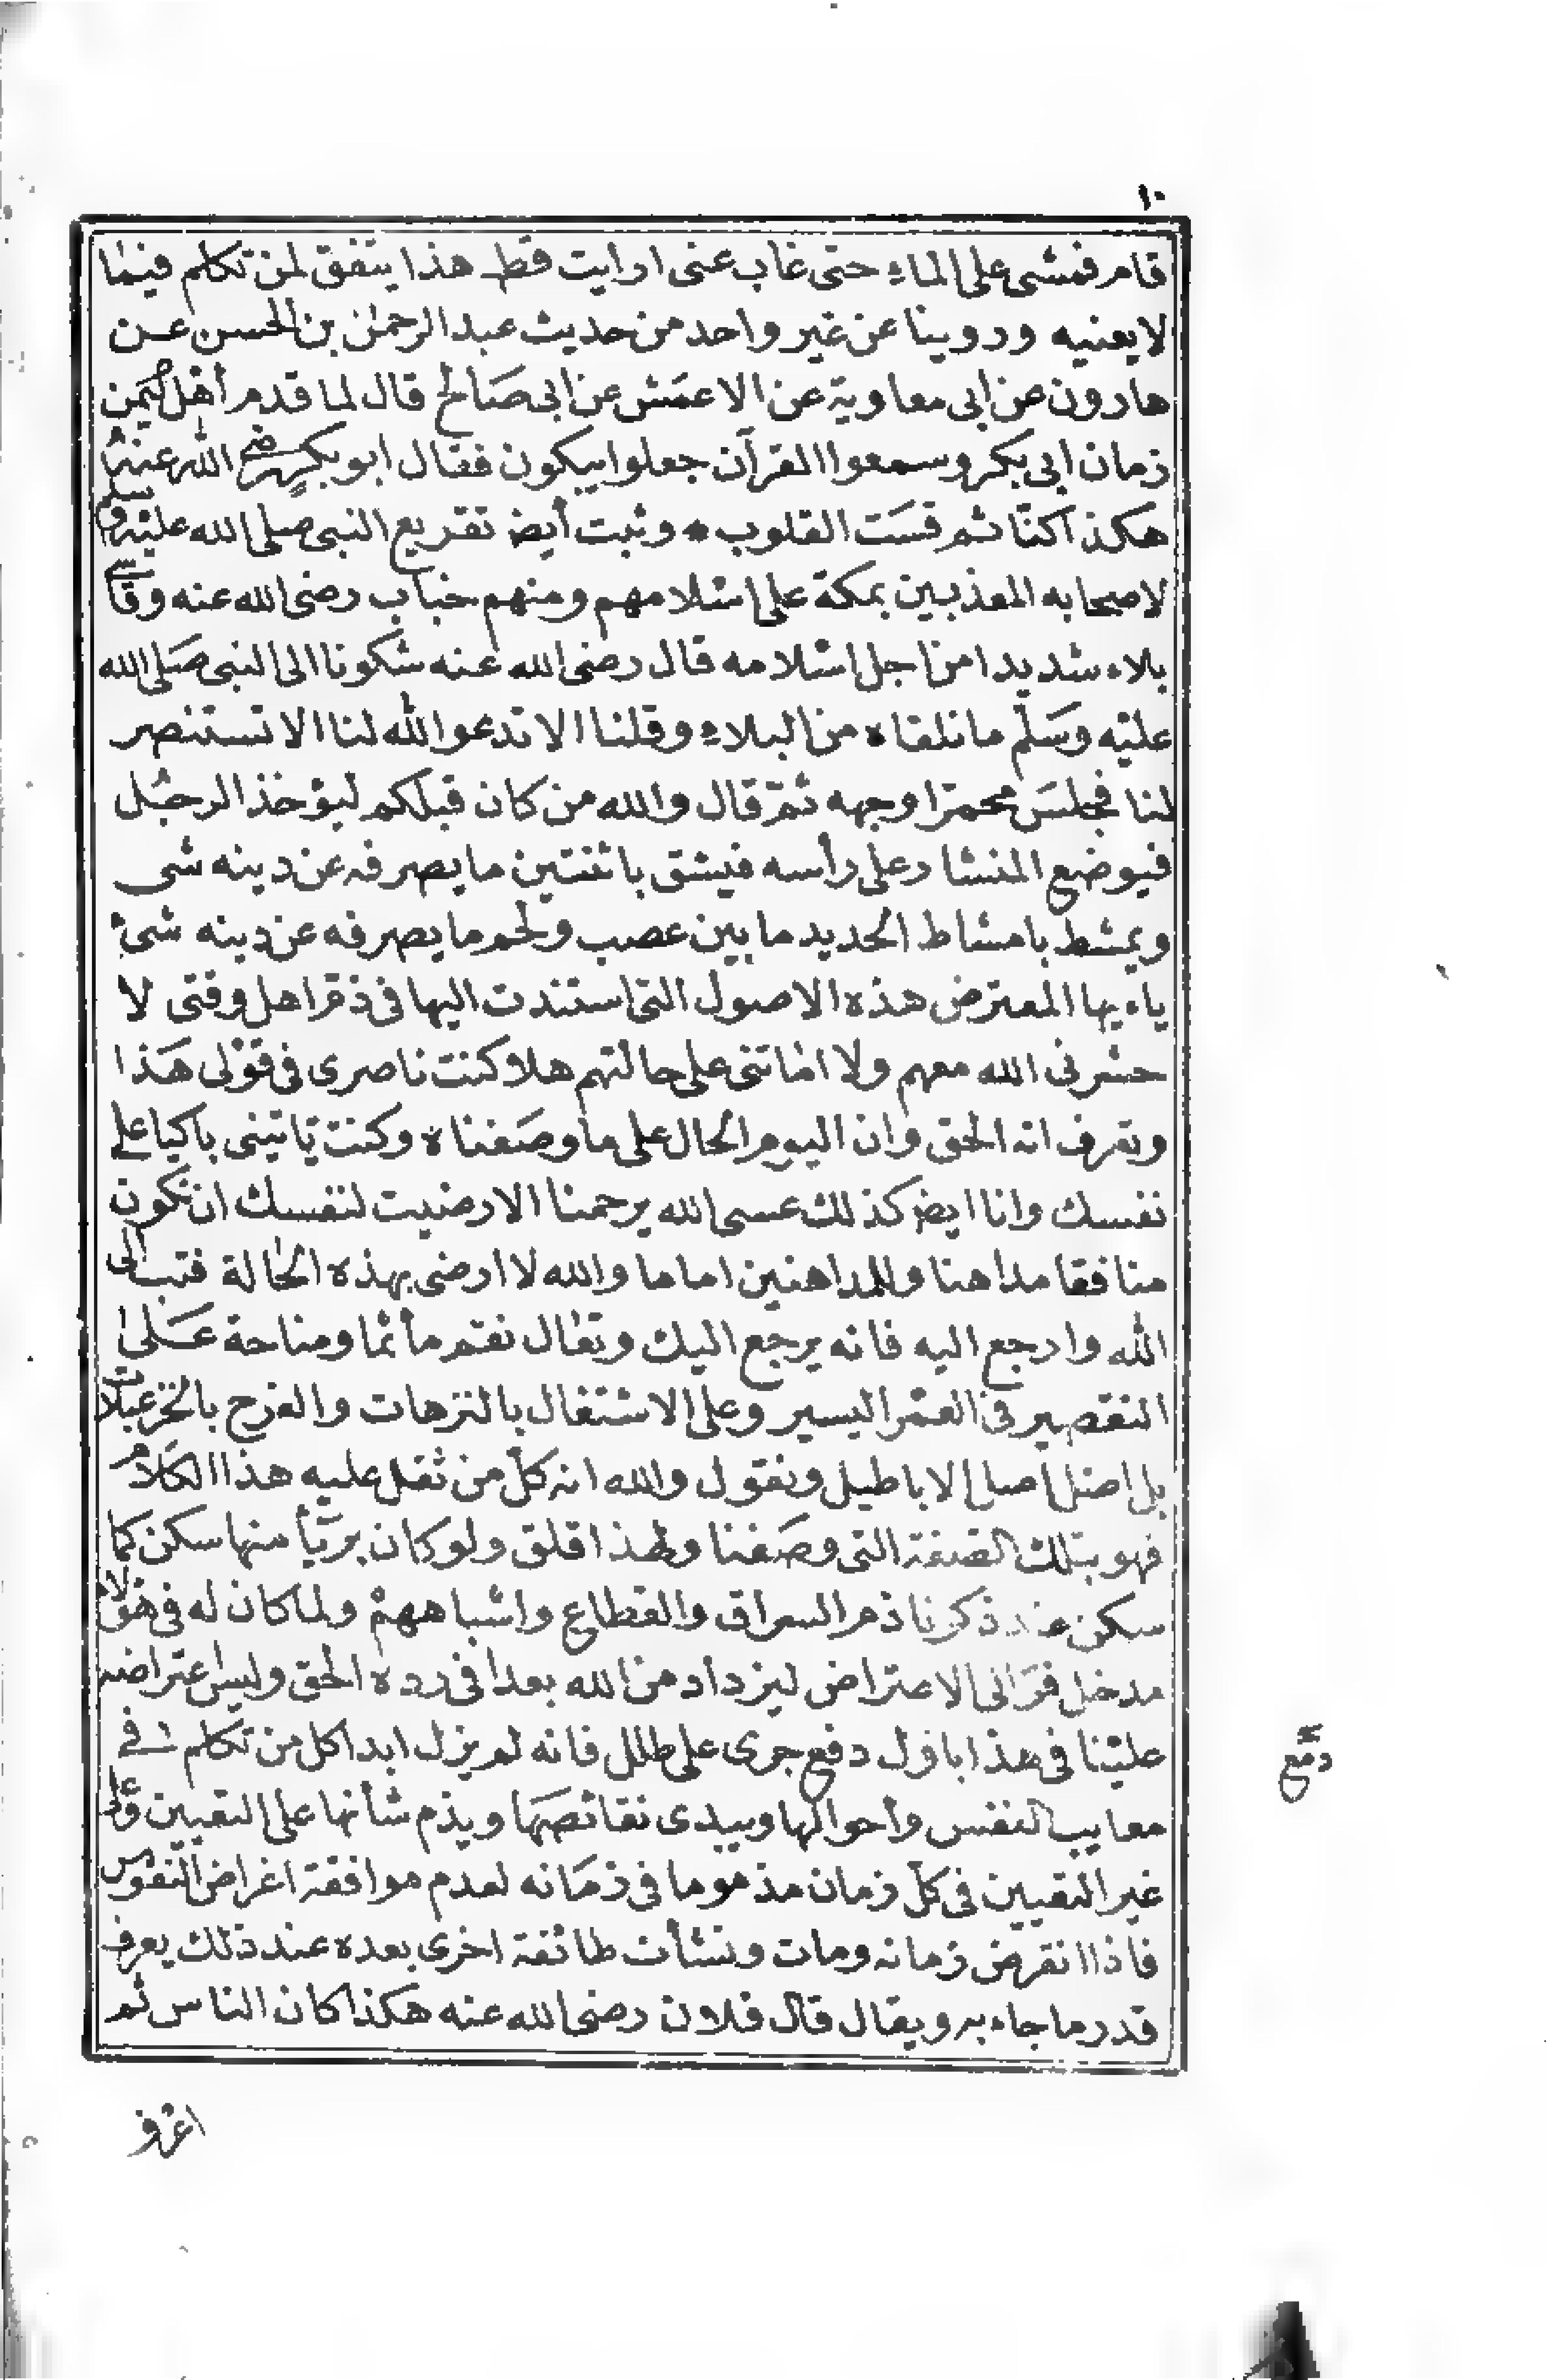 ١٠
قام فمشى على الماء حتى غاب عنى ارايت قط هذا يتفق لمن تكلم فيما
لا يعنيه وروينا عن غير واحد من حديث عبد الرحمن بن الحسن عن
هارون عن ابى معاوية عن الاعمش عن ابى صالح قال لما قدم أهل اليمن
زمان ابى بكر وسمعوا القرآن جعلوا يبكون فقال ابو بكر رضى الله عنه
هكذا كنّا ثم قست القلوب * وثبت أيض تقريع النبى صلى الله عليه وسلم
لاصحابه المعذبين بمكة على اسلامهم ومنهم خباب رضى الله عنه وقا
بلاء شديدا من اجل اسلامه قال رضى الله عنه شكونا الى النبى صلى الله
عليه وسلم ما نلقاه من البلاء وقلنا الا تدعو الله لنا الا تستنصر
لنا فجلس محمرّا وجهه ثمّ قال والله من كان قبلكم ليؤخذ الرجل
فيوضع المنشار على رأسه فيشق باثنتين ما يصرفه عن دينه شى
ويمشط بامشاط الحديد ما بين عصب ولحم ما يصرفه عن دينه شئ
ياء يها المعترض هذه الاصول التى استندت اليها فى ذمّ اهل وقتى لا
حشرنى الله معهم ولا اماتنى على حالتهم هلا كنت ناصرى فى قولى هذا
وتعرف انه الحق وان اليوم الحال على ما وصفناه وكنت تاتينى باكيا على
نفسك وانا ايض كذلك عسى الله يرحمنا الارضيت لنفسك ان تكون
منافقا مداهنا وللمداهنين اماما والله لا ارضى بهذه الحالة فتب الى
الله وارجع اليه فانه يرجع اليك وتعال نقم مأتما ومناحة على
التقصير فى العمر اليسير وعلى الاشتغال بالترهات والفرح بالخزعبلات
بل اصل اصل الاباطيل ونقول والله انه كلّ من ثقل عليه هذا الكلام
فهو بتلك الصفة التى وصفنا ولهذا قلق ولو كان بريّأ منها سكن كما
سكن عند ذكرنا ذم السراق والقطاع واشباههم ولما كان له فى هؤلاء
مدخل فرّ الى الاعتراض ليزداد من الله بعدا فى رده الحق وليس اعتراضه
علينا فى هذا باول دفع جرى على طلل فانه لم يزل ابدا كل من تكلم فى
معايب النفس وأحوالها ويبدى نقائصها ويذم شأنها على التعيين وعلى
غير التعيين فى كلّ زمان مذموما فى زمانه لعدم موافقة اغراض النفوس
فاذا انقرض زمانه ومات ونشأت طائفة اخرى بعده عند ذلك يعرف
قدر ما جاء به ويقال قال فلان رضى الله عنه هكذا كان الناس ثم